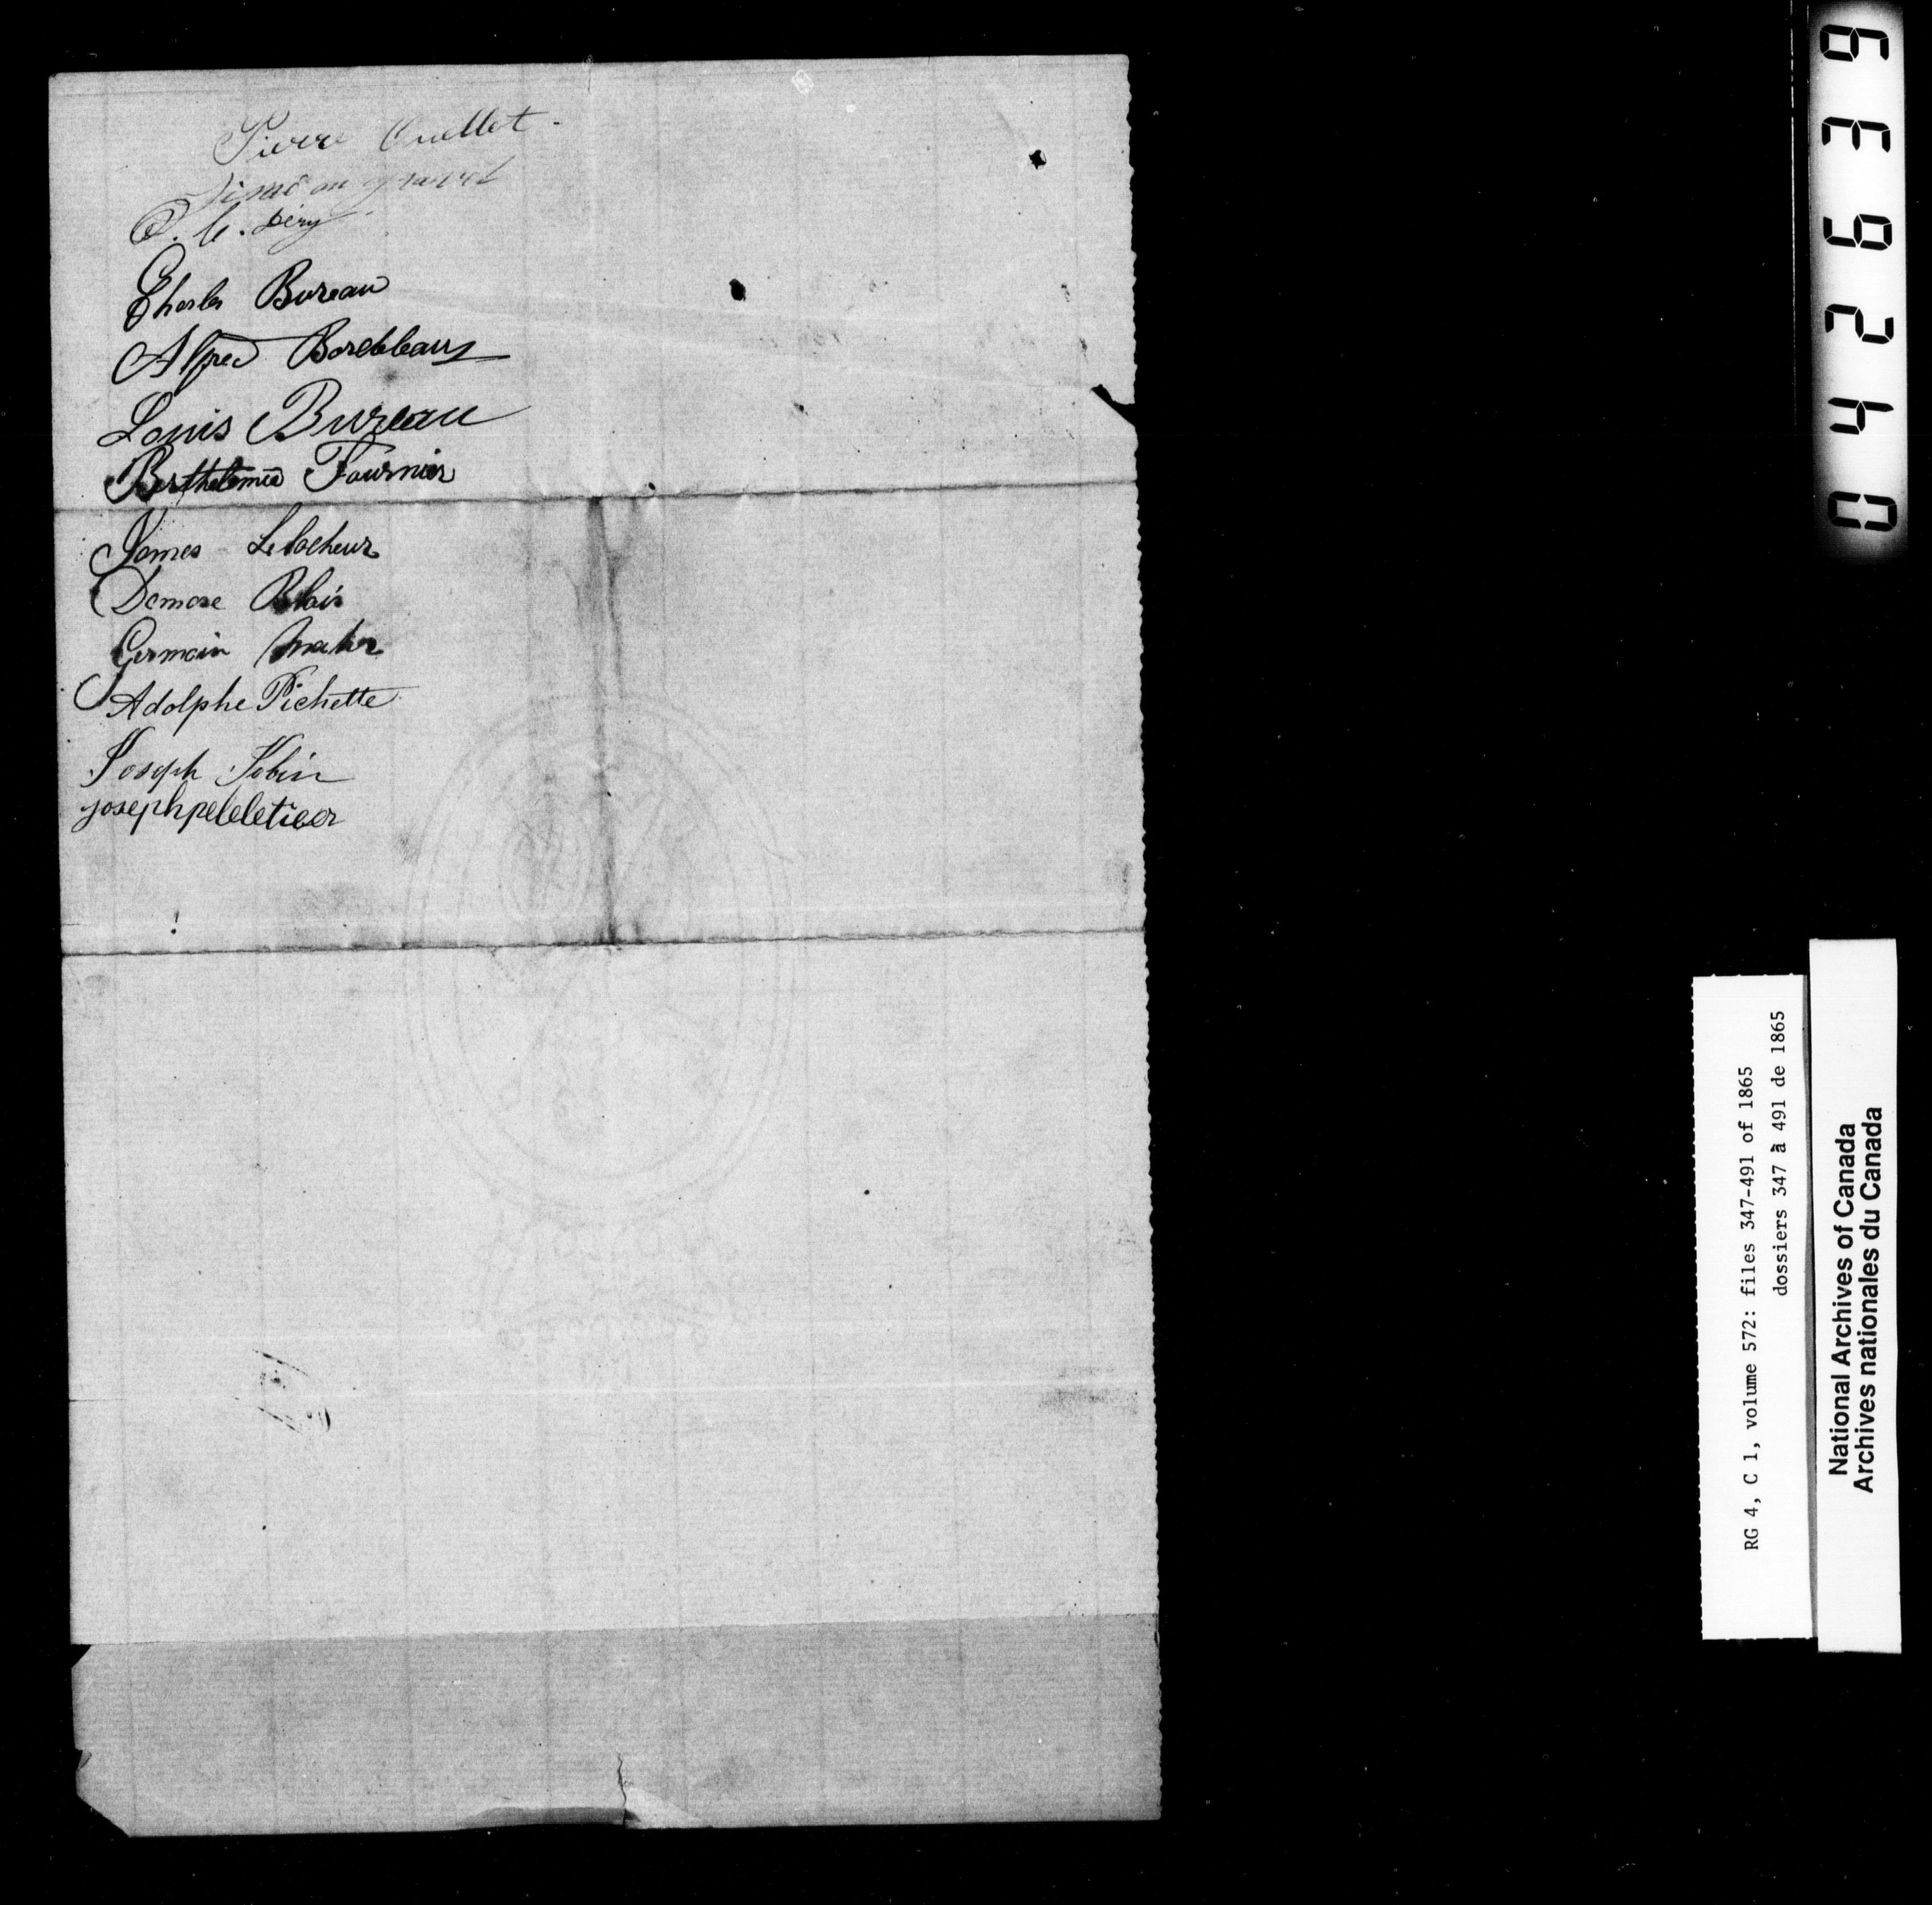 Pierre Ouellet
Siméon gravel
C. Déry
Charles Bureau
Alfred Bordeleau
Louis Bureau
Berthelemie Fournier
James Lelacheur
Damase Blais
Germain Maher
Adolphe Pichette
Joseph Jobin
joseph pelletier
042639
RG 4, C 1, volume 572: files 347-491 of 1865
dossiers 347 à 491 de 1865
National Archives of Canada
Archives nationales du Canada